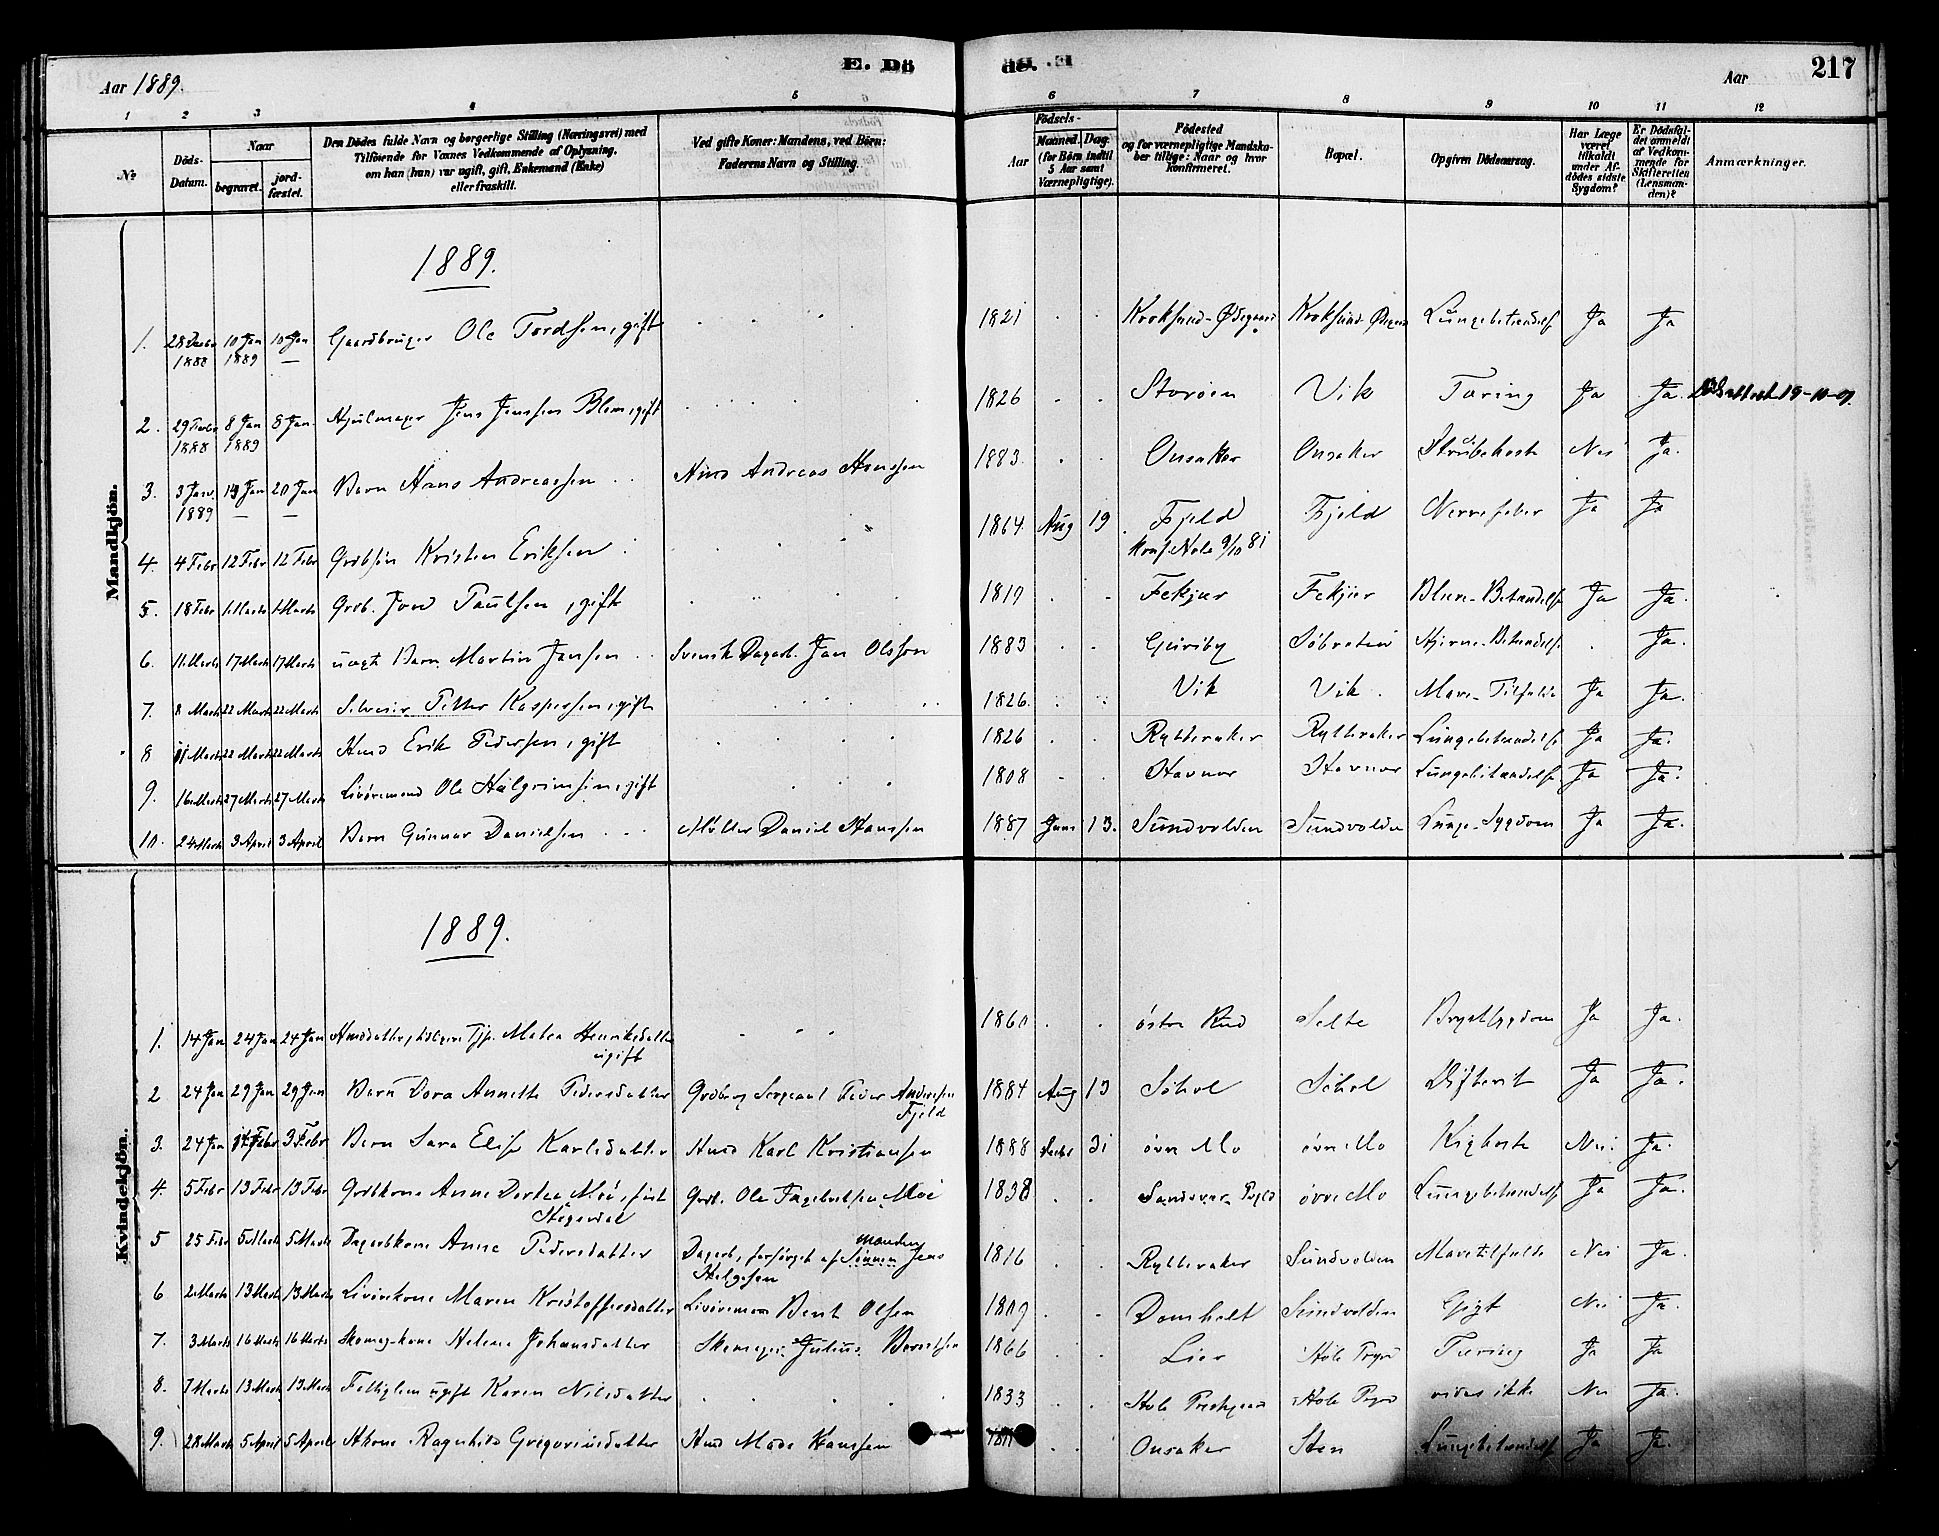 Aar 1889.
E. Dö
de.
Aar
217
1 2 3 4 5 6 7 8 9 10 11 12
No.
Döds-Datum.
Naar
begravet.
jordfæstet.
Den Dödes fulde Navn og borgerlige Stilling (Næringsvei) med
Tilföiende for Voxnes Vedkommende af Oplysning,
om han (hun) var ugift, gift, Enkemand (Enke)
eller fraskilt.
Ved gifte Koner: Mandens, ved Börn:
Faderens Navn og Stilling.
Födsels-
Aar
Maaned.
Dag
(for Börn indtil
5 Aar samt
Værnepligtige).
Födested
og for værnepligtige Mandskaber tillige: Naar og hvor
konfirmeret.
Bopæl.
Opgiven Dödsaarsag.
Har Læge
været
tilkaldt
under Afdödes sidste
Sygdom?
Er Dödsfaldet anmeldt
af Vedkommende for
Skifteretten
(Lensmanden)?
Anmærkninger.
Mandkjön.
1889.
1. 28 Decbr 1888 10 Jan 1889 10 Jan Gaardbruger Ole Tordsen, gift 1821 Kroksund-Ødegaard Kroksund Lungebetændelse Ja Ja
2. 29 Decbr 1888 8 Jan 1889 8 Jan. Hjulmager Jens Jenssen gift 1826 Storøen Vik Tæring Ja Ja. 19-10-01.
3. 3 Janr. 1889 19 Jan 20 Jan Barn Hans Andreassen Hmd Andreas Hanssen 1883 Onsaker Onsaker Strubehoste Nei Ja.
4. 4 Febr 12 Febr 12 Febr Grdbsön Kristen Eriksen 1864 Aug 19 Fjeld Fjeld Nervefeber Ja Ja
Konf. Hole 9/10 81
5. 18 Febr 1 Marts 1 Marts Grdb. Jon Paulsen, gift 1819 Fekjær Fekjær Blære-Betændelse Ja Ja.
6. 11 Marts 17 Marts 17 Marts uægt Barn Martin Jansen Svensk Dagarb. Jan Olsson 1883 Guriby Hjerne-Betændelse Ja.
7. 8 Marts 22 Marts 22 Marts Selveier Petter Kaspersen, gift 1826. Vik Vik. Mave-Tilfælde Ja Ja.
8 11 Marts 22 Marts 22 Marts Hmd Erik Pedersen, gift 1826 Rytteraker Rytteraker Lungebetændelse Ja Ja.
9. 16 Marts 27 Marts 27 Marts Livöremand Ole Halgrimsen, gift 1808 Stavnor Stavnor Lungebetændelse Ja Ja.
10. 24 Marts 3 April 3 April Barn Gunnar Danielsen Møller Daniel Hanssen 1887 Juni 13. Sundvolden Sundvolden Lunge-Sygdom Ja Ja.
Kvindekjön.
1889.
1. 14 Jan 24 Jan 24 Jan Matea Henriksdatter 1860 østre Rud Selte Brystsygdom Ja Ja.
ugift
2 24 Jan 29 Jan 29 Jan Barn Dora Annette Pedersdatter Grdbr og Sergeant Peder Andersen 1884 Aug 13 Søhol Søhol Difterit Ja Ja.
Fjeld
3. 24 Jan 3 Febr Barn Sara Elise Karlsdatter Hmd Karl Kristiansen 1888 Decbr 31 øvre Mo øvre Mo Kighoste Nei. Ja.
4. 5 Febr 13 Febr 13 Febr Grdbkone Anne Dortea Moe, født Grdb. Ole Ingebretsen Moe 1838 øvre Mo Lungebetændelse Ja Ja.
5 25 Febr 5 Marts 5 Marts Dagarbkone Anne Pedersdatter Dagarb., forsörget af Sönnen Jens 1816 Rytteraker Sundvolden Mavetilfælde Nei Ja.
manden
Helgesen
6 2 Marts 13 Marts 13 Marts Livörekone Maren Kristoffersdatter Livöremann Bent Olsen 1809 Domholt Sundvolden Gigt Nei Ja.
7. 3 Marts 16 Marts 16 Marts Skomag.kone Helene Johansdatter Skomager Julius Berntsen 1866 Lier Hole Prgd Tæring Ja Ja
8. 7 Marts 13 Marts 13 Marts Fattiglem ugift Karen Nilsdatter 1833 Hole Prestegaard Hole Prgd vides ikke Nei Ja.
9. 28 Marts 5 April 5 April Hkone Ragnhild Gregoriusdatter Hmd Mads Hanssen Onsaker Sten Lungebetændelse Ja Ja.